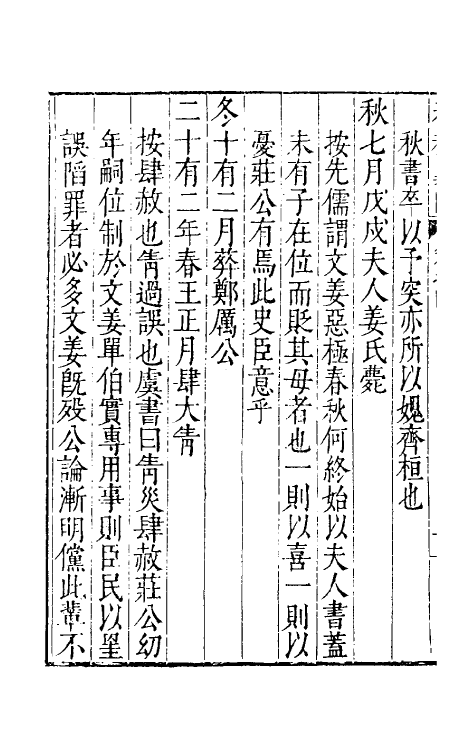 秋書卒以予突亦所以媿齊桓也
秋七月戊戌夫人姜氏薨
按先儒謂文姜惡極春秋何終始以夫人書蓋
未有子在位而貶其母者也一則以喜一則以
憂莊公有焉此史臣意乎
冬十有二月葬鄭厲公
二十有二年春王正月肆大眚
按肆赦也眚過誤也虞書曰眚災肆赦莊公幼
年嗣位制於文姜單伯實專用事則臣民以眚
誤陷罪者必多文姜旣殁公論漸明儻此輩不